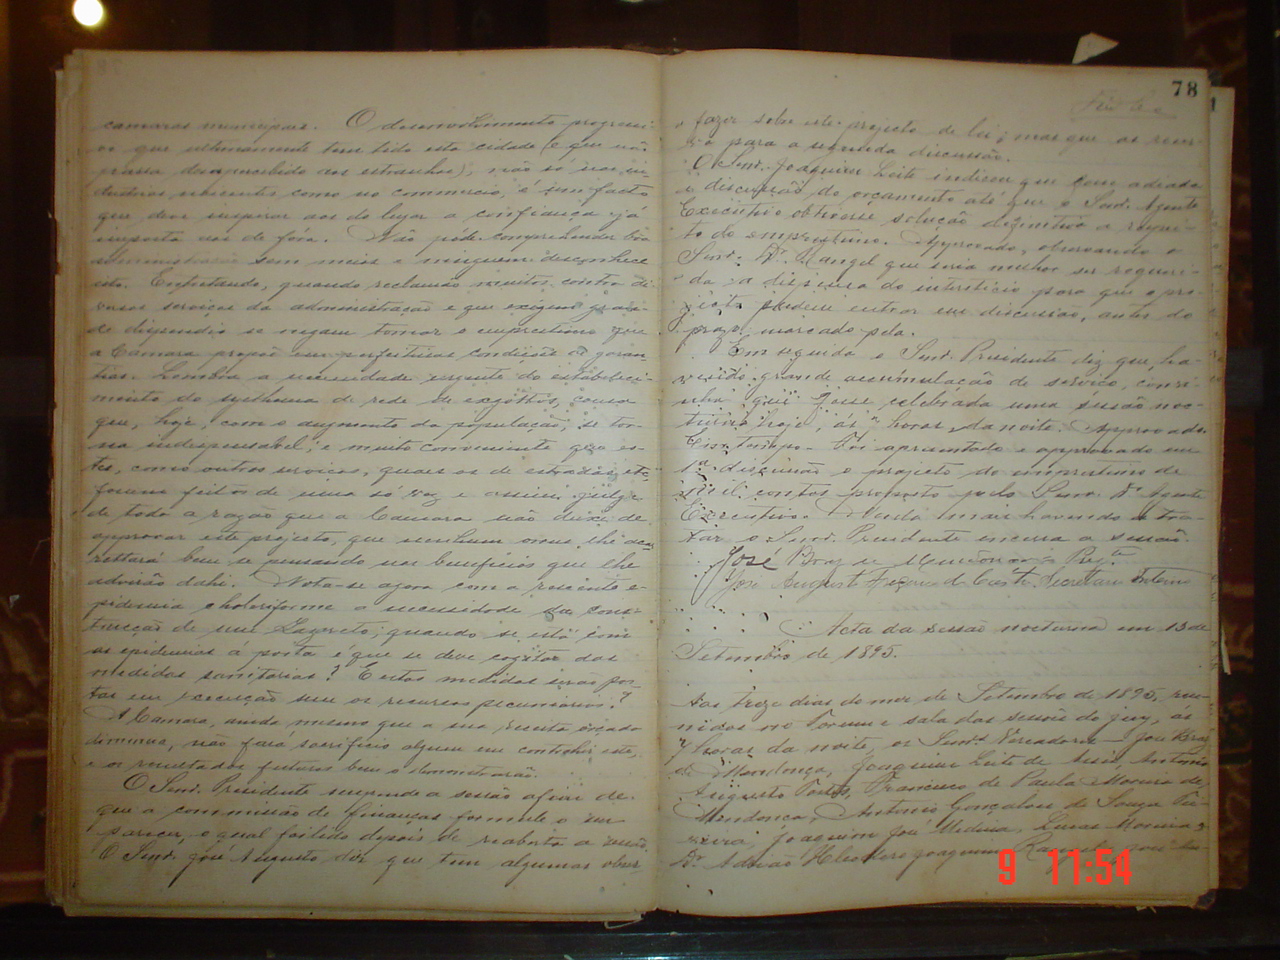 camaras municipaes. O desenvolvimento progressi-
vo que ultimamente tem tido esta cidade (e que não
passa desapercebido aos estranhos), não só nas in-
dustrias nascentes como no commercio, é um facto
que deve inspirar aos do lugar a confiança já
imposta aos de fóra. Não póde comprehender bôa
administração sem meios e ninguem desconhece
isto. Entretanto, quando reclamão muitos contra di-
versos serviços da administração e que exigem grande
dispendio se negam tomar o emprestimo que
a Camara propoe em perfeitissimas condições de garan-
tias. Lembra a necessidade urgente do estabeleci-
mento do systhema de rede de exgottos, cousa
que, hoje, com o augmento da população, se tor-
na indispensavel, e muito conveniente que es-
tes, como outros serviços, quaes os de estradas, etc,
forem feitos de uma só vez e assim julga
de toda a razão que a Camara não deixe de
approvar este projecto, que nenhum onus lhe acar-
rettará bem se pensando nos beneficios que lhe
advirão dahi. Nota-se agora com a recente e-
pidemia choleriforme a necessidade da cons-
trucção de um Lazareto; quando se está com
as epidemias á porta é que se deve cogitar das
medidas sanitarias? E estas medidas serão pos-
tas em execução sem os recursos pecuniarios?
A Camara, ainda mesmo que a sua receita orçada
diminua, não fará sacrificio algum em contrahir este,
e os resultados futuros bem o demonstrarão.
O Snr. Presidente suspende a sessão afim de
que a commissão de finanças formule o seu
parecer, o qual foi lido depois de reaberta a sessão.
O Snr. José Augusto diz que tem algumas obser-
78
fazer sobre este projecto de lei; mas que as reser-
va para a segunda discussão.
O Snr. Joaquim Leite indicou que fosse adiada
a discussão do orçamento até que o Snr. Agente
Executivo obtivesse solução definitiva a respei-
to do emprestimo. Approvado, observando o
Snr. Dr. Rangel que seria melhor ser requeri-
da a dispensa do intersticio para que o pro-
jecto podesse entrar em discussão, antes do
prazo marcado pela.
Em seguida o Snr. Presidente diz que, ha-
vendo grande accumulação de serviço, convi-
nha que fosse celebrada uma sessão noc-
turna hoje, ás 7 horas da noite. Approvado.
Em tempo. Foi apresentado e approvado em
1a discussão o projecto do emprestimo de
mil contos proposto pelo Snr. Dr. Agente
Executivo. Nada mais havendo a tra-
tar o Snr. Presidente encerra a sessão.
José Braz de Mendonça Prese.
José Augusto de Castro Secretario Interino
Acta da sessão nocturna em 13 de
Setembro de 1895.
Aos treze dias do mez de Setembro de 1895, reu-
nidos no Forum e sala das sessões do jury, ás
7 horas da noite, os Snrs. Vereadores José Braz
de Mendonça, Joaquim Leite de Assis, Antonio
Augusto Pontes, Francisco de Paula Moreira de
Mendonça, Antonio Gonçalves de Souza Pe-
reira, Joaquim José Medina, Lucas Moreira e
Dr. Adrião
9 11:54